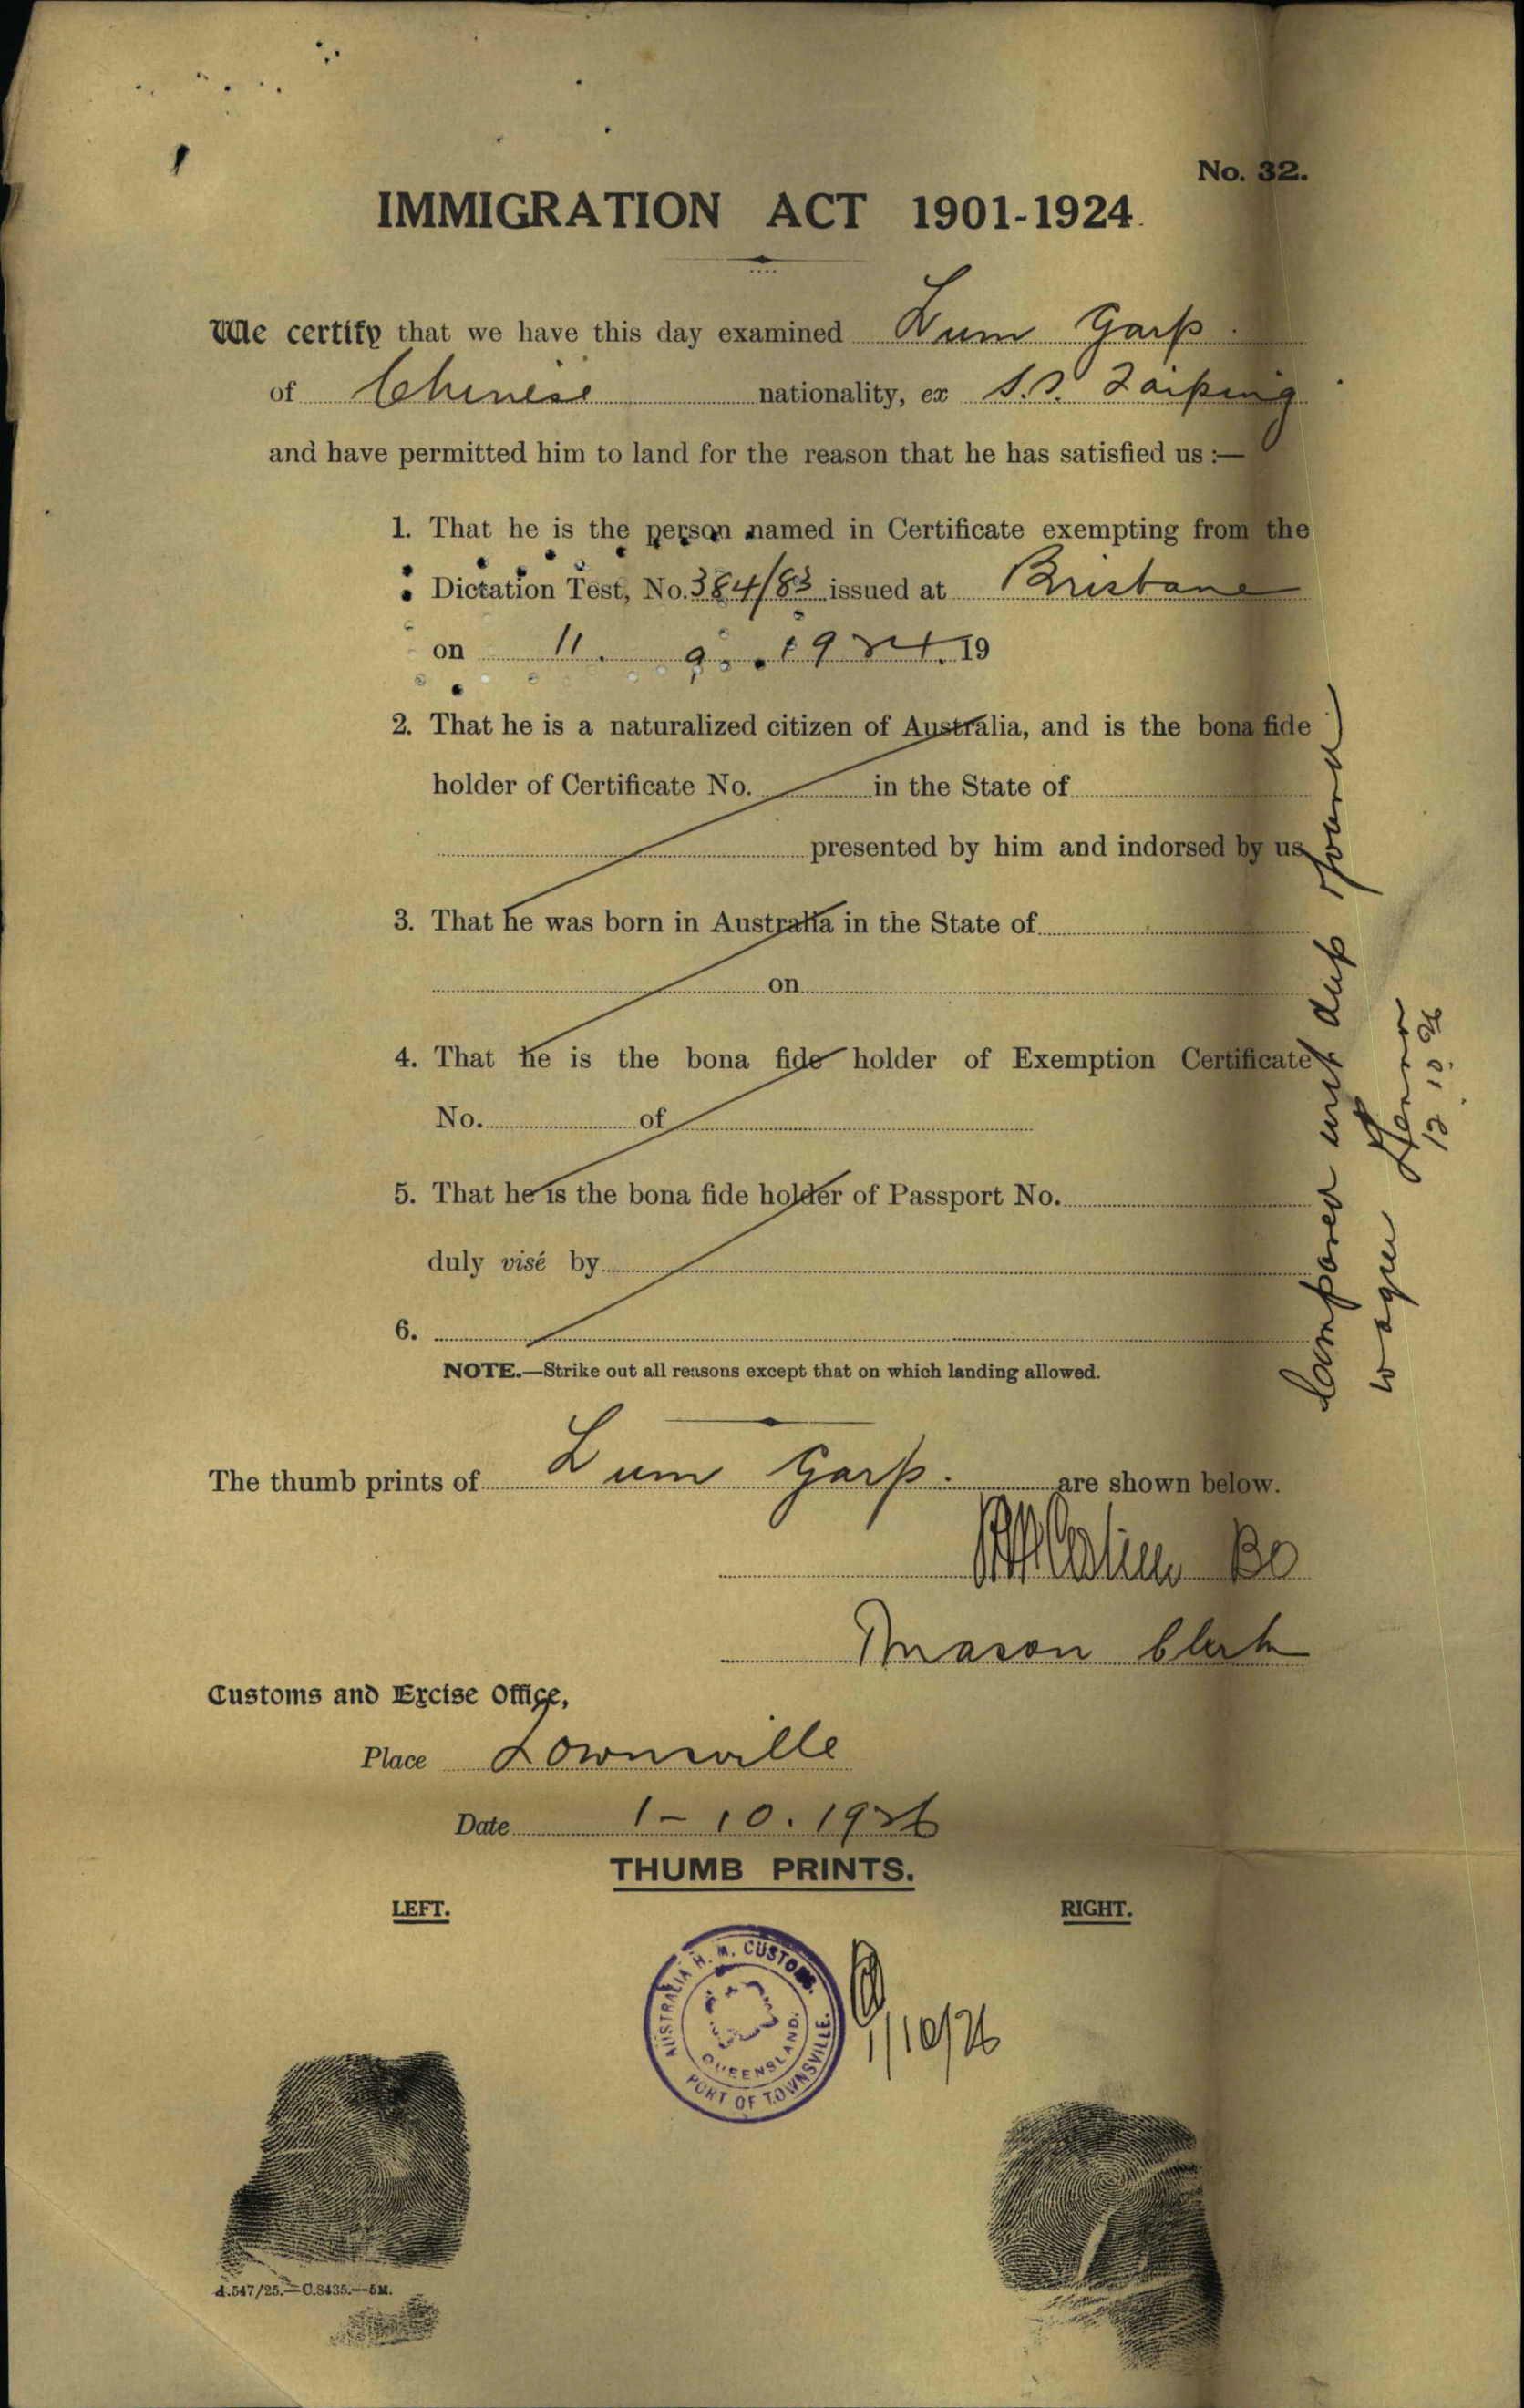 No. 32.
IMMIGRATION ACT 1901-1924.
We certify that we have this day examined Lum Garp.
of Chinese nationality, ex S.S. Taiping
and have permitted him to land for the reason that he has satisfied us :—
1. That he is the person named in Certificate exempting from the
Dictation Test, No. 384/83 issued at Brisbane
on 11. 9. 1924. 19
2. That he is a naturalized citizen of Australia, and is the bona fide
holder of Certificate No. in the State of
presented by him and indorsed by us
3. That he was born in Australia in the State of
on
4. That he is the bona fide holder of Exemption Certificate
No. of
5. That he is the bona fide holder of Passport No.
duly visé by
6.
NOTE.—Strike out all reasons except that on which landing allowed.
Compared with dup found
to agree
12.10.26
The thumb prints of Lum Garp. are shown below.
BO
Mason Clerk
Customs and Excise Office,
Place Townsville
Date 1-10.1926
THUMB PRINTS.
LEFT.
RIGHT.
AUSTRALIA H. M. CUSTOMS.
QUEENSLAND.
PORT OF TOWNSVILLE.
1/10/26
A.547/25.—C.8435.—5M.